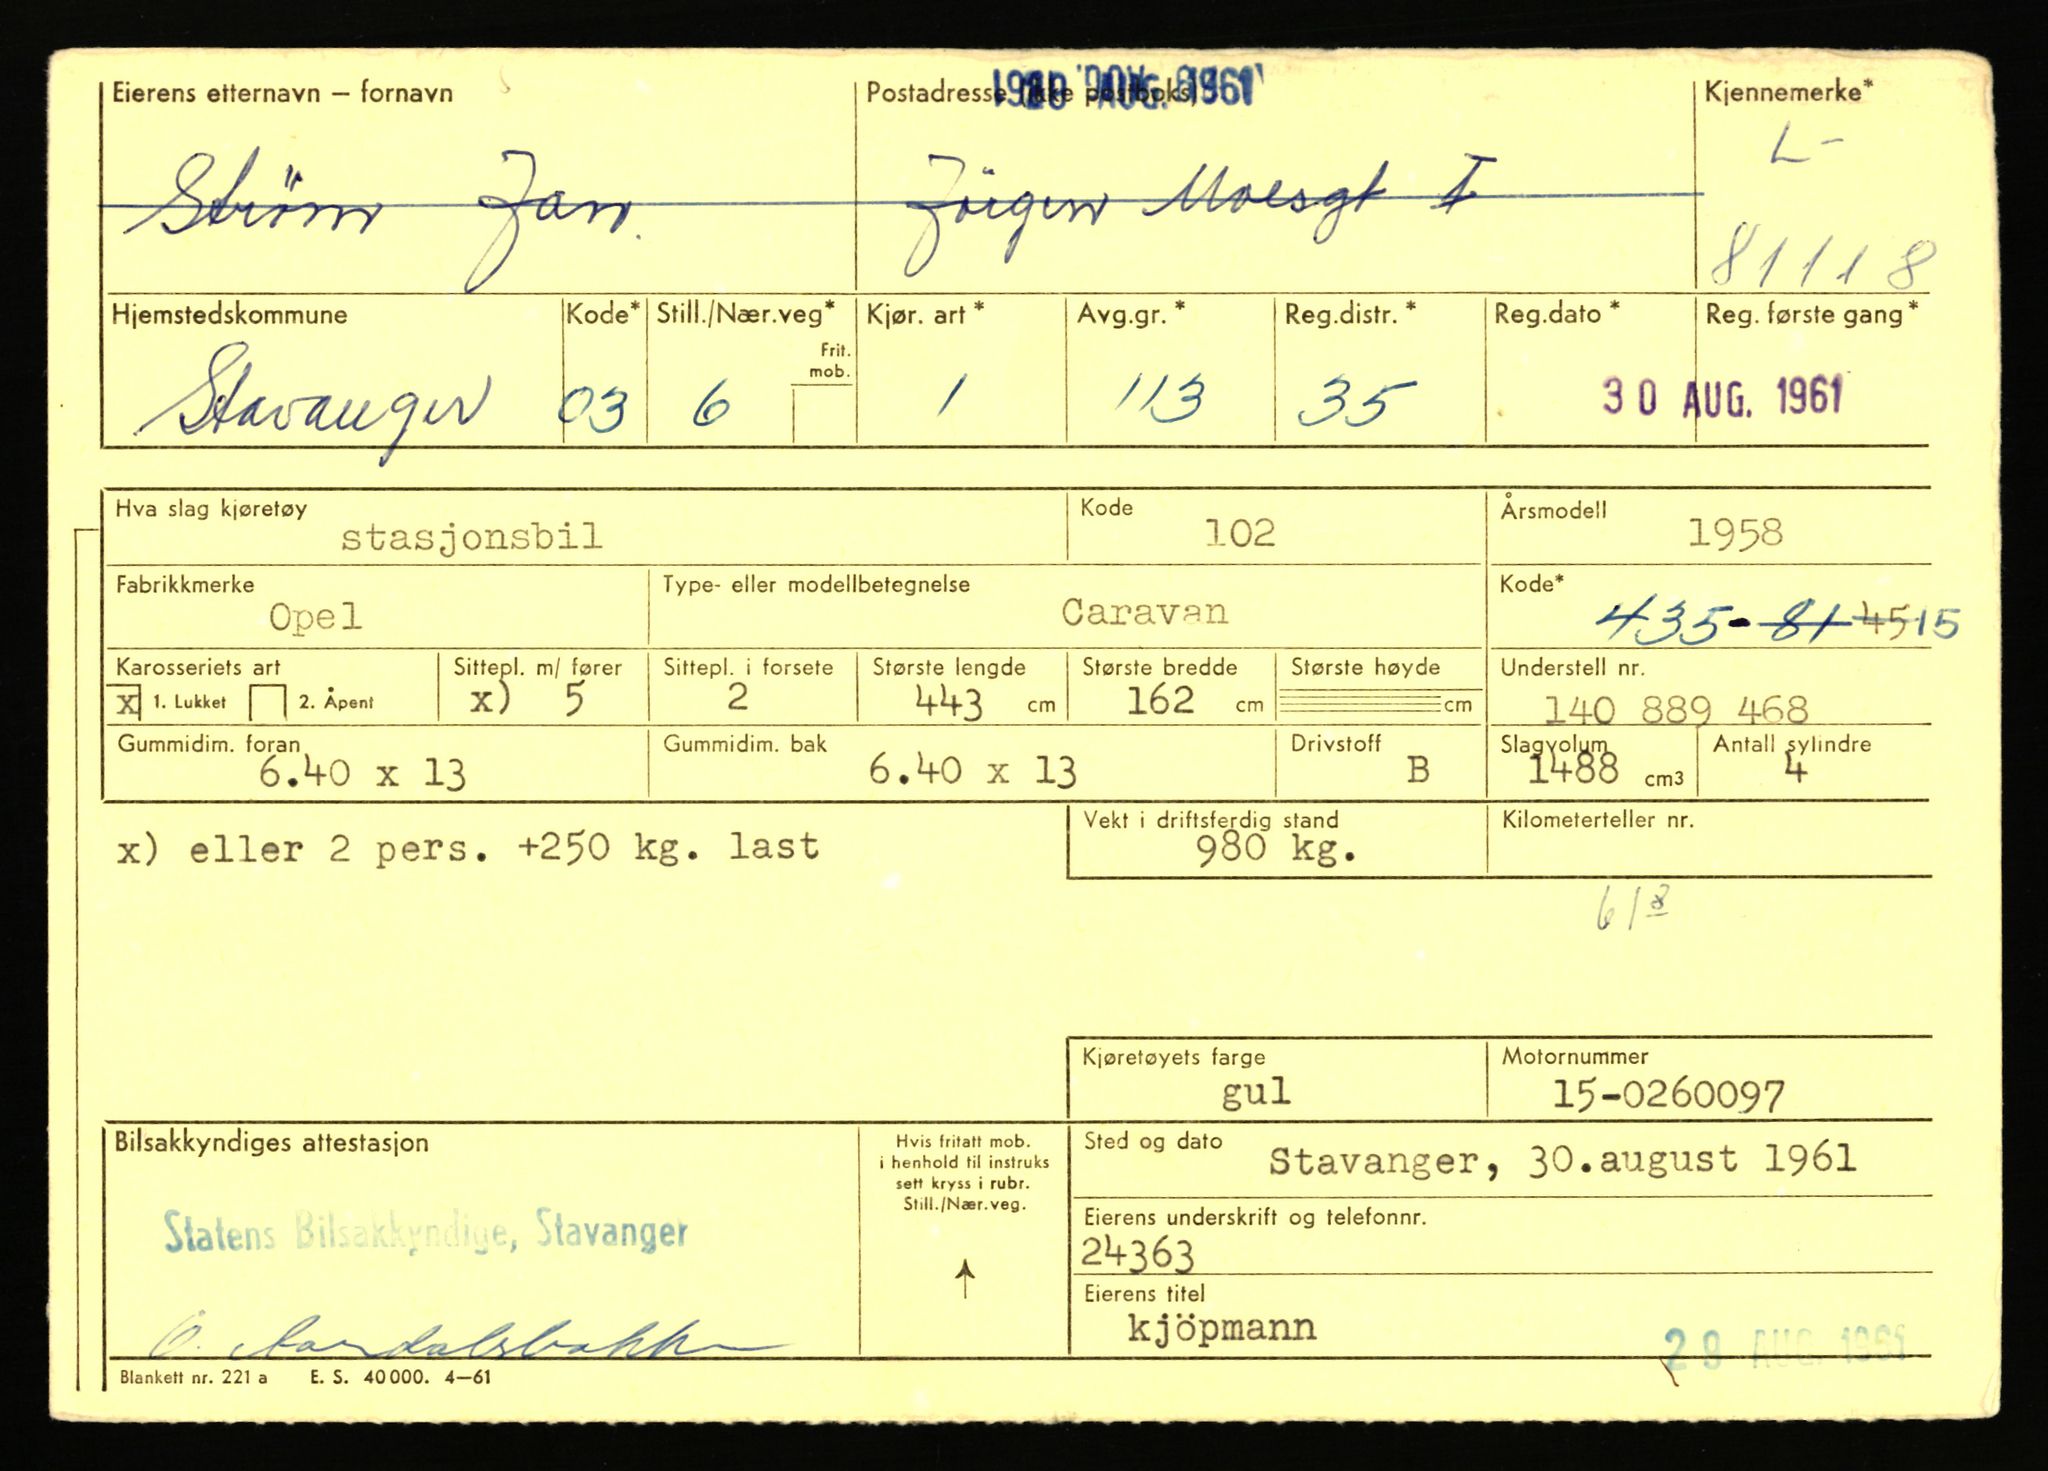 Eierens etternavn – fornavn
Postadresse (ikke postboks)
AUG. 1961
Kjennemerke*
Ström Jan.
Jörgen Moesgt
L-
81118
Hjemstedskommune
Kode*
Still./Nær.veg*
Frit.
mob.
Kjør. art*
Avg.gr.*
Reg.distr.*
Reg.dato*
Reg. første gang*
Stavanger
03
6
1
113
35
30 AUG. 1961
Hva slag kjøretøy
stasjonsbil
Kode
102
Årsmodell
1958
Fabrikkmerke
Opel
Type- eller modellbetegnelse
Caravan
Kode*
435-81 45 15
Karosseriets art
x 1. Lukket 2. Åpent
Sittepl. m/ fører
x) 5
Sittepl. i forsete
2
Største lengde
443 cm
Største bredde
162 cm
Største høyde
cm
Understell nr.
140 889 468
Gummidim. foran
6.40 x 13
Gummidim. bak
6.40 x 13
Drivstoff
B
Slagvolum
1488 cm3
Antall sylindre
4
x) eller 2 pers. +250 kg. last
Vekt i driftsferdig stand
980 kg.
Kilometerteller nr.
61 8
Kjøretøyets farge
gul
Motornummer
15-0260097
Bilsakkyndiges attestasjon
Statens Bilsakkyndige, Stavanger
Hvis fritatt mob.
i henhold til instruks
sett kryss i rubr.
Still./Nær.veg.
Sted og dato
Stavanger, 30.august 1961
Eierens underskrift og telefonnr.
24363
Eierens titel
kjöpmann
29 AUG. 1961
Blankett nr. 221 a E. S. 40 000. 4–61